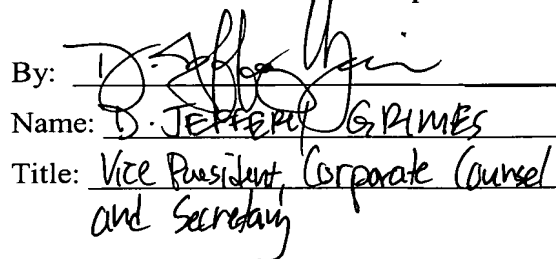 By:
Name: D. JEFFERY GRIMES
Title: Vice President, Corporate Counsel
and Secretary